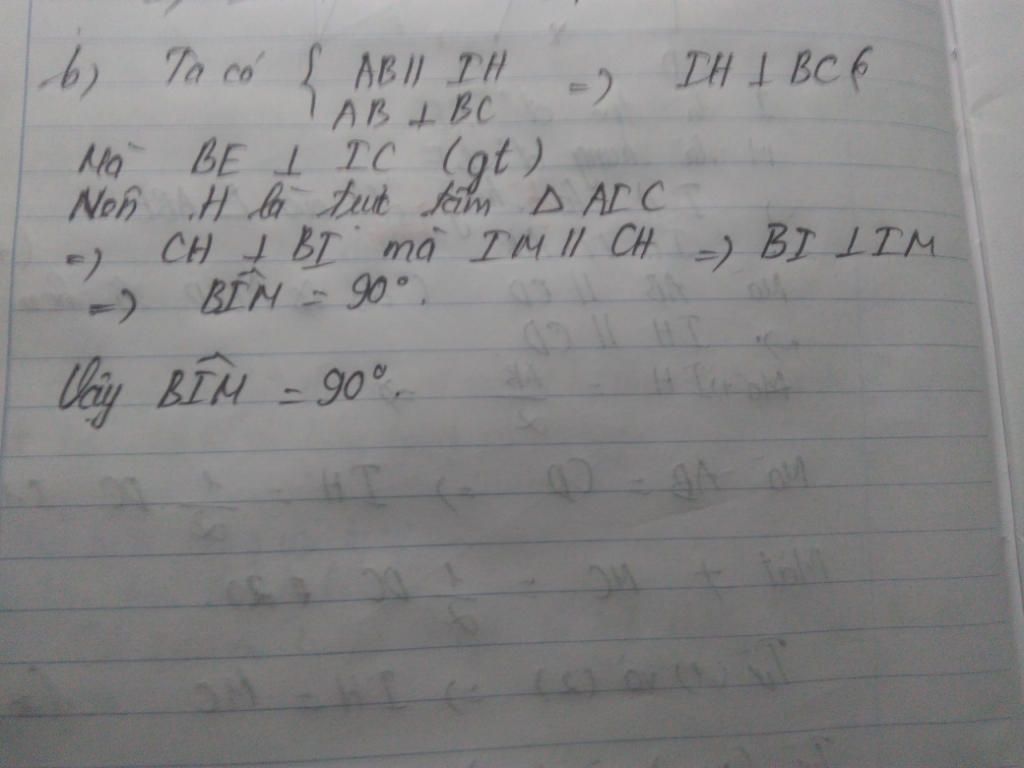 b) Ta có { AB // IH => IH ⊥ BC
AB ⊥ BC
Mà BE ⊥ IC (gt)
Nên H là trực tâm Δ AIC
=> CH ⊥ BI mà IM // CH => BI ⊥ IM
=> BIM̂ = 90°.
Vậy BIM̂ = 90°.